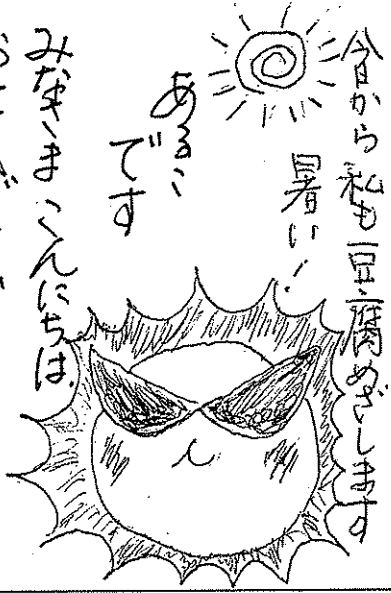 今日から私も豆腐めざします
暑い!
あるこ
です
みなさまこんにちは、